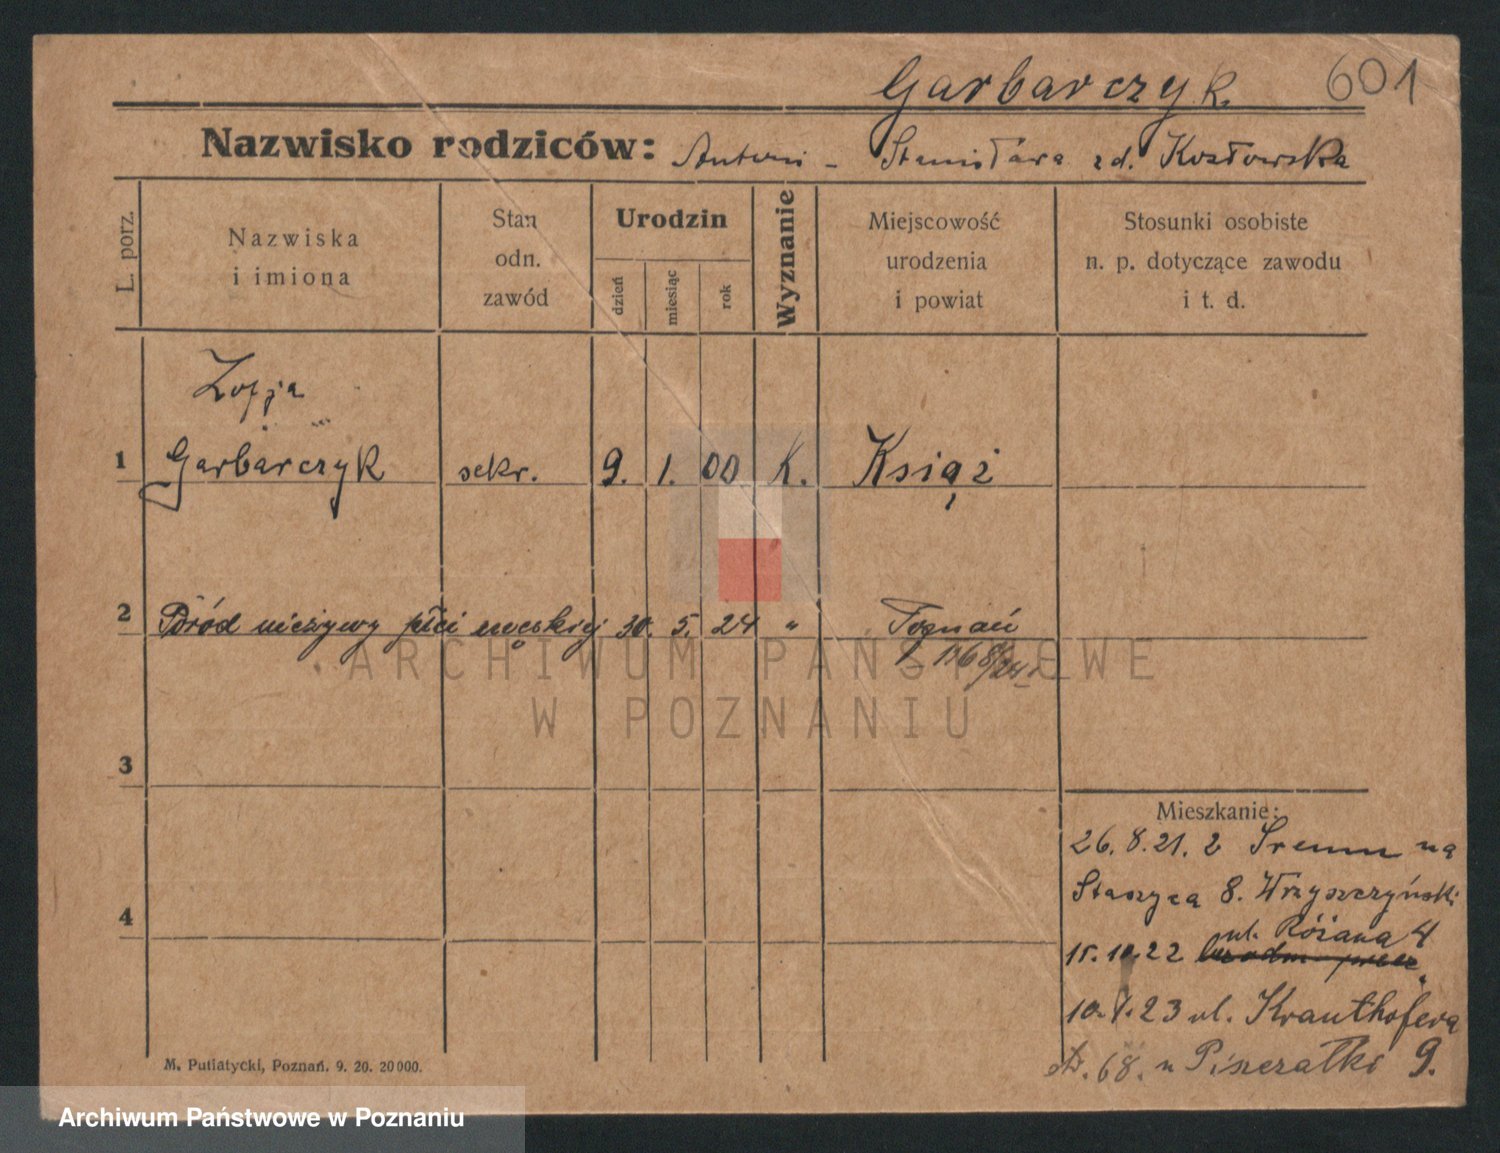 Garbarczyk. 601
Nazwisko rodziców: Antoni - Stanisława zd. Kozłowska
L. porz.
Nazwiska
i imiona
Stan
odn.
zawód
Urodzin
dzień
miesiąc
rok
Wyznanie
Miejscowość
urodzenia
i powiat
Stosunki osobiste
n. p. dotyczące zawodu
i t. d.
Zofja
1 Garbarczyk sekr. 9. 1. 00 K. Książ
2 Poród nieżywy płci męskiej 30. 5. 24 " Poznań
1368/24
ARCHIWUM PAŃSTWOWE
W POZNANIU
3
4
Mieszkanie:
26. 8. 21. z Śremu na
Staszyca 8. Wrzyszczyński
ul. Różana 4
15. 10. 22
10. 1. 23 ul. Krauthofera
68. u Piszczałki 9.
M. Putiatycki, Poznań. 9. 20. 20000.
Archiwum Państwowe w Poznaniu